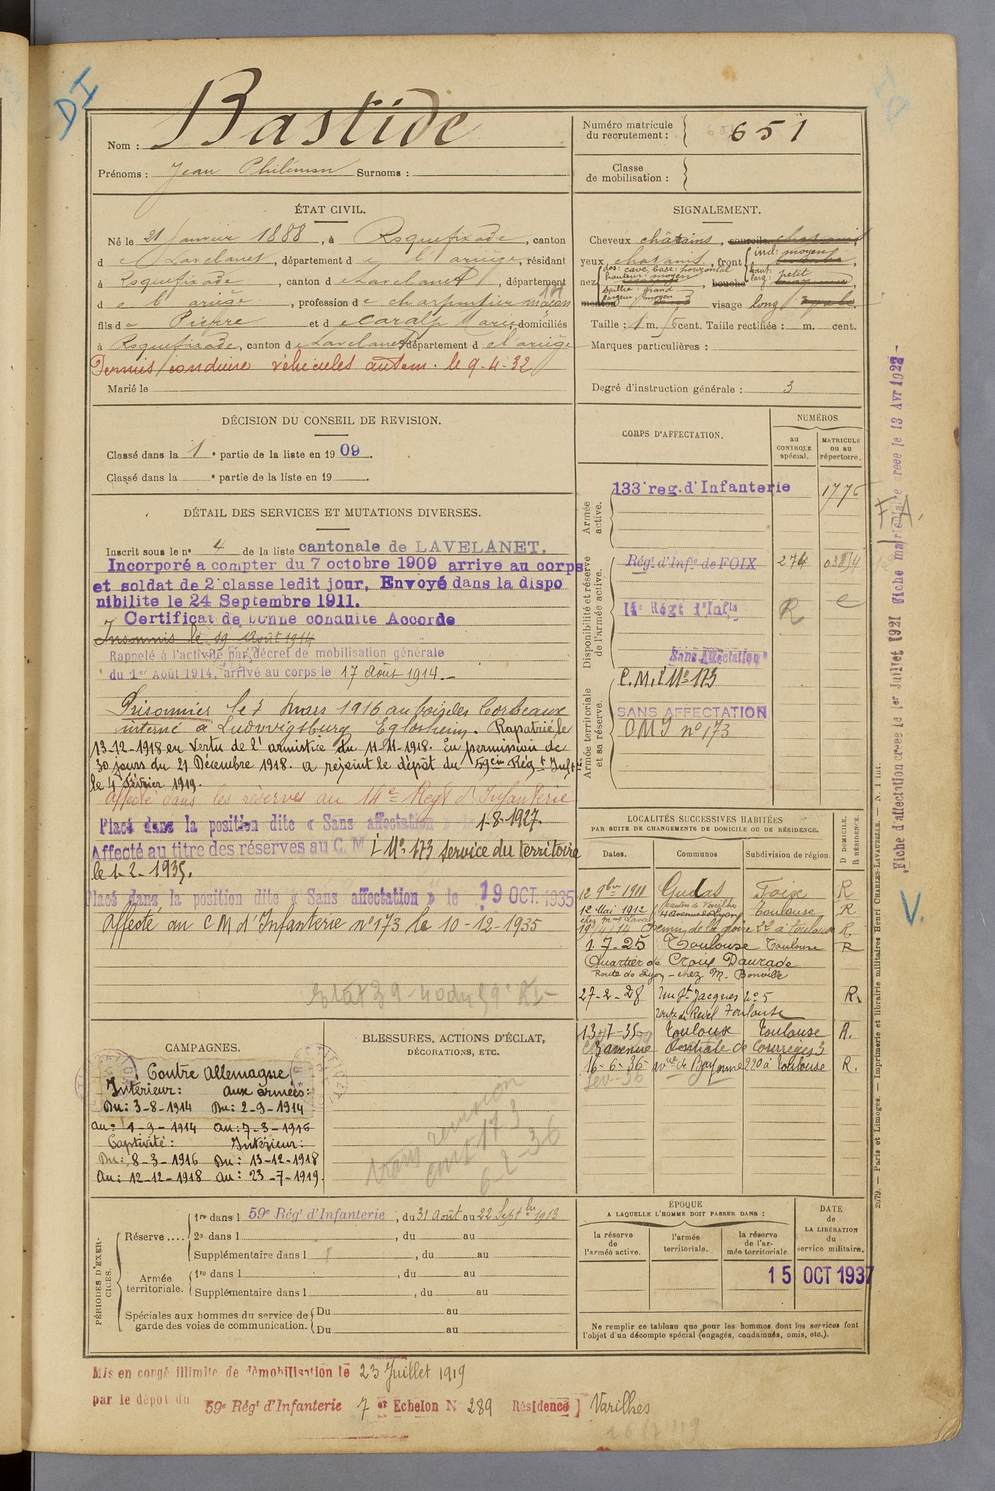 DI
Nom : Bastide
Prénoms : Jean Philémon Surnoms :
Numéro matricule du recrutement : 651
Classe de mobilisation :
ÉTAT CIVIL.
Né le 21 janvier 1888, à Roquefixade, canton
d e Lavelanet, département d e l'ariège, résidant
à Roquefixade, canton d e Lavelanet, département
d e l'ariège, profession d e charpentier maçon
fils d e Pierre et d e Caralp Marie domiciliés
à Roquefixade, canton d e Lavelanet département d e l'ariège
Permis conduire véhicules autom. le 9-4-32
Marié le
SIGNALEMENT.
Cheveux châtains, sourcils chatains
yeux chatains, front { incl: moyen
haut:
larg: petit
nez { dos: cave, base: horizontal
hauteur: moyen
saillie: grand
largeur: moyen
bouche
menton visage long
Taille : 1 m. 6 cent. Taille rectifiée : m. cent.
Marques particulières :
Degré d'instruction générale : 3
DÉCISION DU CONSEIL DE REVISION.
Classé dans la 1e partie de la liste en 1909.
Classé dans la e partie de la liste en 19
DÉTAIL DES SERVICES ET MUTATIONS DIVERSES.
Inscrit sous le n° 4 de la liste cantonale de LAVELANET.
Incorporé a compter du 7 octobre 1909 arrive au corps
et soldat de 2e classe ledit jour, Envoyé dans la dispo
nibilite le 24 Septembre 1911.
Certificat de bonne conduite Accorde
Insoumis le 19 Août 1914
Rappelé à l'activité par décret de mobilisation générale
du 1er Août 1914, arrivé au corps le 17 août 1914.-
Prisonnier le 7 mars 1916 au bois des Corbeaux
interné à Ludwigsburg Eglosheim. Rapatrié le
13-12-1918 en vertu de l'armistice du 11-11-1918. En permission de
30 jours du 21 Décembre 1918. a rejoint le dépôt du 59ème Régt Inftie
le 4 Février 1919.
affecté dans les réserves au 14e Régt d'Infanterie
Placé dans la position dite « Sans affectation » le 1-8-1927.
Affecté au titre des réserves au C. M. I N° 173 service du territoire
le 1-2-1935.
Placé dans la position dite « Sans affectation » le 19 OCT. 1935
Affecté au C M d'Infanterie n° 173 le 10-12-1935
CORPS D'AFFECTATION.
NUMÉROS
au CONTROLE spécial.
MATRICULE ou au répertoire.
Armée active.
133e reg. d'Infanterie 1776
Disponibilité et réserve de l'armée active.
Régt d'Infie de FOIX 274
14e Régt d'Infie R
Sans Affectation
Armée territoriale et sa réserve.
C.M.I N° 173
SANS AFFECTATION
CMI n° 173
LOCALITÉS SUCCESSIVES HABITÉES
PAR SUITE DE CHANGEMENTS DE DOMICILE OU DE RÉSIDENCE.
Dates. Communes Subdivision de région. D DOMICILE. R RÉSIDENCE.
12 9bre 1911 Gudas Foix R
canton de Varilhes
12 Mai 1912 Toulouse R
1-7-25 Toulouse Toulouse R
Quartier de Croix Daurade
Route de Lyon - chez M. Bonville
27-2-28 rue St Jacques n° 5 R.
route de Revel Toulouse
13-7-35 Toulouse Toulouse R.
16-6-36 ave de Bayonne 220 à Toulouse R.
CAMPAGNES.
Contre Allemagne
Intérieur: aux armées:
Du: 3-8-1914 Du: 2-9-1914
au: 1-9-1914 au: 7-3-1916
Captivité: Intérieur:
Du: 8-3-1916 Du: 13-12-1918
au: 12-12-1918 au: 23-7-1919.
BLESSURES, ACTIONS D'ÉCLAT,
DÉCORATIONS, ETC.
173
6-2-36
PÉRIODES D'EXERCICES.
Réserve....
1re dans l 59e Régt d'Infanterie, du 31 Août au 22 Septbre 1913
2e dans l , du au
Supplémentaire dans l , du au
Armée territoriale.
1re dans l , du au
Supplémentaire dans l , du au
Spéciales aux hommes du service de garde des voies de communication.
Du au
Du au
ÉPOQUE
A LAQUELLE L'HOMME DOIT PASSER DANS :
la réserve de l'armée active.
l'armée territoriale.
la réserve de l'armée territoriale
DATE de LA LIBÉRATION du service militaire.
15 OCT 1937
Ne remplir ce tableau que pour les hommes dont les services font
l'objet d'un décompte spécial (engagés, condamnés, omis, etc.).
Mis en congé illimité de démobilisation le 23 Juillet 1919
par le dépot du 59e Régt d'Infanterie 7 er Echelon N° 289 Résidence Varilhes
Fiche d'affectation créée le 1er Juillet 1921 Fiche matriculaire créée le 13 Avr 1922 -
2079. — Paris et Limoges. — Imprimerie et librairie militaires Henri CHARLES-LAVAUZELLE. — N. 1 int.